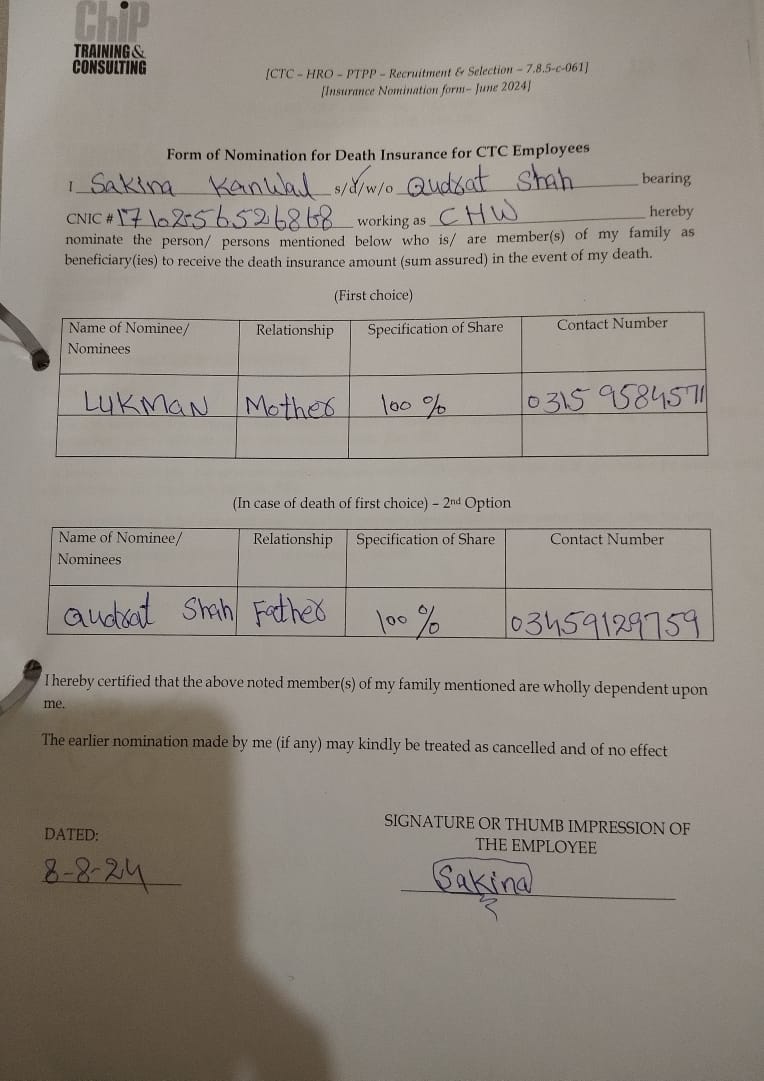 ChiP
TRAINING &
CONSULTING
[CTC – HRO – PTPP – Recruitment & Selection – 7.8.5-c-061]
[Insurance Nomination form– June 2024]
Form of Nomination for Death Insurance for CTC Employees
I Sakina Kanwal s/d/w/o Qudrat Shah bearing
CNIC # working as CHW hereby
nominate the person/ persons mentioned below who is/ are member(s) of my family as
beneficiary(ies) to receive the death insurance amount (sum assured) in the event of my death.
(First choice)
Name of Nominee/ Relationship Specification of Share Contact Number
Nominees
LUKMAN Mother 100 % 0315 9584571
(In case of death of first choice) – 2nd Option
Name of Nominee/ Relationship Specification of Share Contact Number
Nominees
Qudrat Shah Father 100 % 03459129759
I hereby certified that the above noted member(s) of my family mentioned are wholly dependent upon
me.
The earlier nomination made by me (if any) may kindly be treated as cancelled and of no effect
SIGNATURE OR THUMB IMPRESSION OF
DATED: THE EMPLOYEE
8-8-24 Sakina